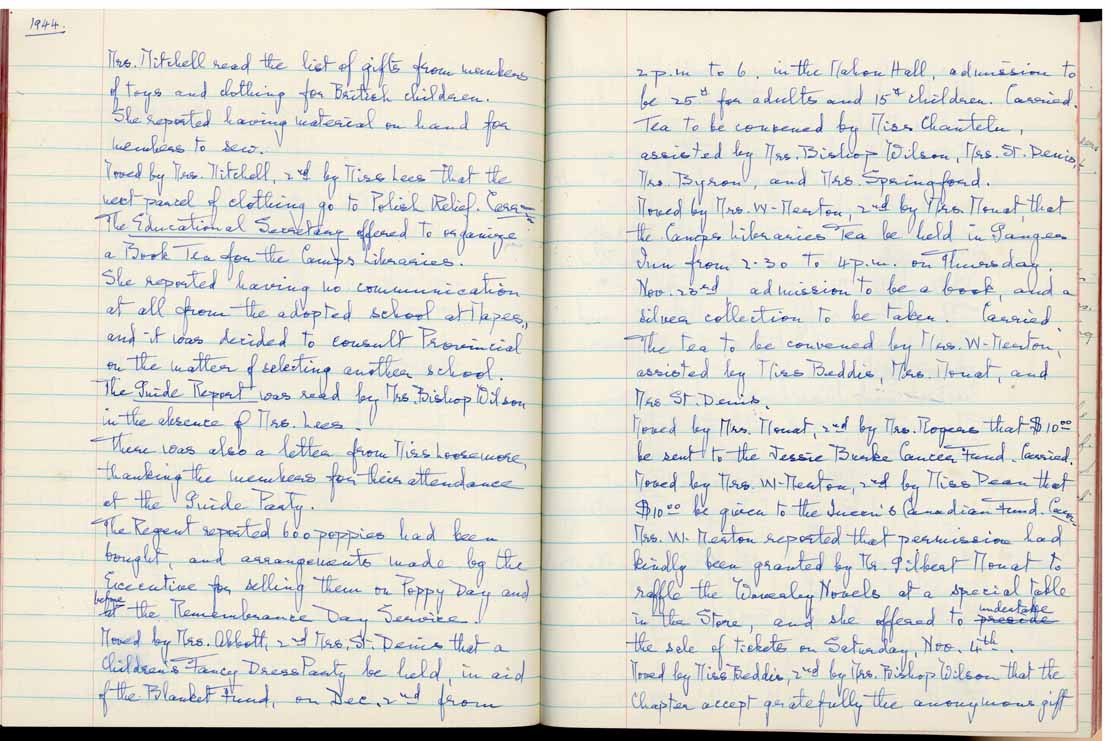 1944.
Mrs. Mitchell read the list of gifts from members
of toys and clothing for British children.
She reported having material on hand for
members to sew.
Moved by Mrs. Mitchell, 2nd by Miss Lees that the
next parcel of clothing go to Polish Relief. Carr—
The Educational Secretary offered to organize
a Book Tea for the Camps Libraries.
She reported having no communication
at all from the adopted school at Mapes,
and it was decided to consult Provincial
on the matter of selecting another school.
The Guide Report was read by Mrs. Bishop Wilson
in the absence of Mrs. Lees.
There was also a letter from Miss Loosemore,
thanking the members for their attendance
at the Guide Party.
The Regent reported 600 poppies had been
bought, and arrangements made by the
Executive for selling them on Poppy Day and
before
at the Remembrance Day Service.
Moved by Mrs. Abbott, 2nd Mrs. St. Denis that a
Children's Fancy Dress Party be held, in aid
of the Blanket Fund, on Dec. 2nd from
2 p.m to 6. in the Mahon Hall, admission to
be 25¢ for adults and 15¢ children. Carried.
Tea to be convened by Miss Chantelu,
assisted by Mrs. Bishop Wilson, Mrs. St. Denis,
Mrs. Byron, and Mrs. Springford.
Moved by Mrs. W-Merton, 2nd by Mrs. Mouat, that
the Camps Libraries Tea be held in Ganges
Inn from 2.30 to 4 p.m. on Thursday,
Nov. 23rd admission to be a book, and a
silver collection to be taken. Carried
The tea to be convened by Mrs. W-Merton,
assisted by Miss Beddis, Mrs. Mouat, and
Mrs St. Denis.
Moved by Mrs. Mouat, 2nd by Mrs. Rogers that $10.00
be sent to the Jessie Burke Cancer Fund. Carried.
Moved by Mrs. W-Merton, 2nd by Miss Dean that
$10.00 be given to the Queen's Canadian Fund. Carr—
Mrs. W-Merton reported that permission had
kindly been granted by Mr. Gilbert Mouat to
raffle the Waverley Novels at a special table
undertake
in the Store, and she offered to preside
the sale of tickets on Saturday, Nov. 4th.
Moved by Miss Beddis, 2nd by Mrs. Bishop Wilson that the
Chapter accept gratefully the anonymous gift